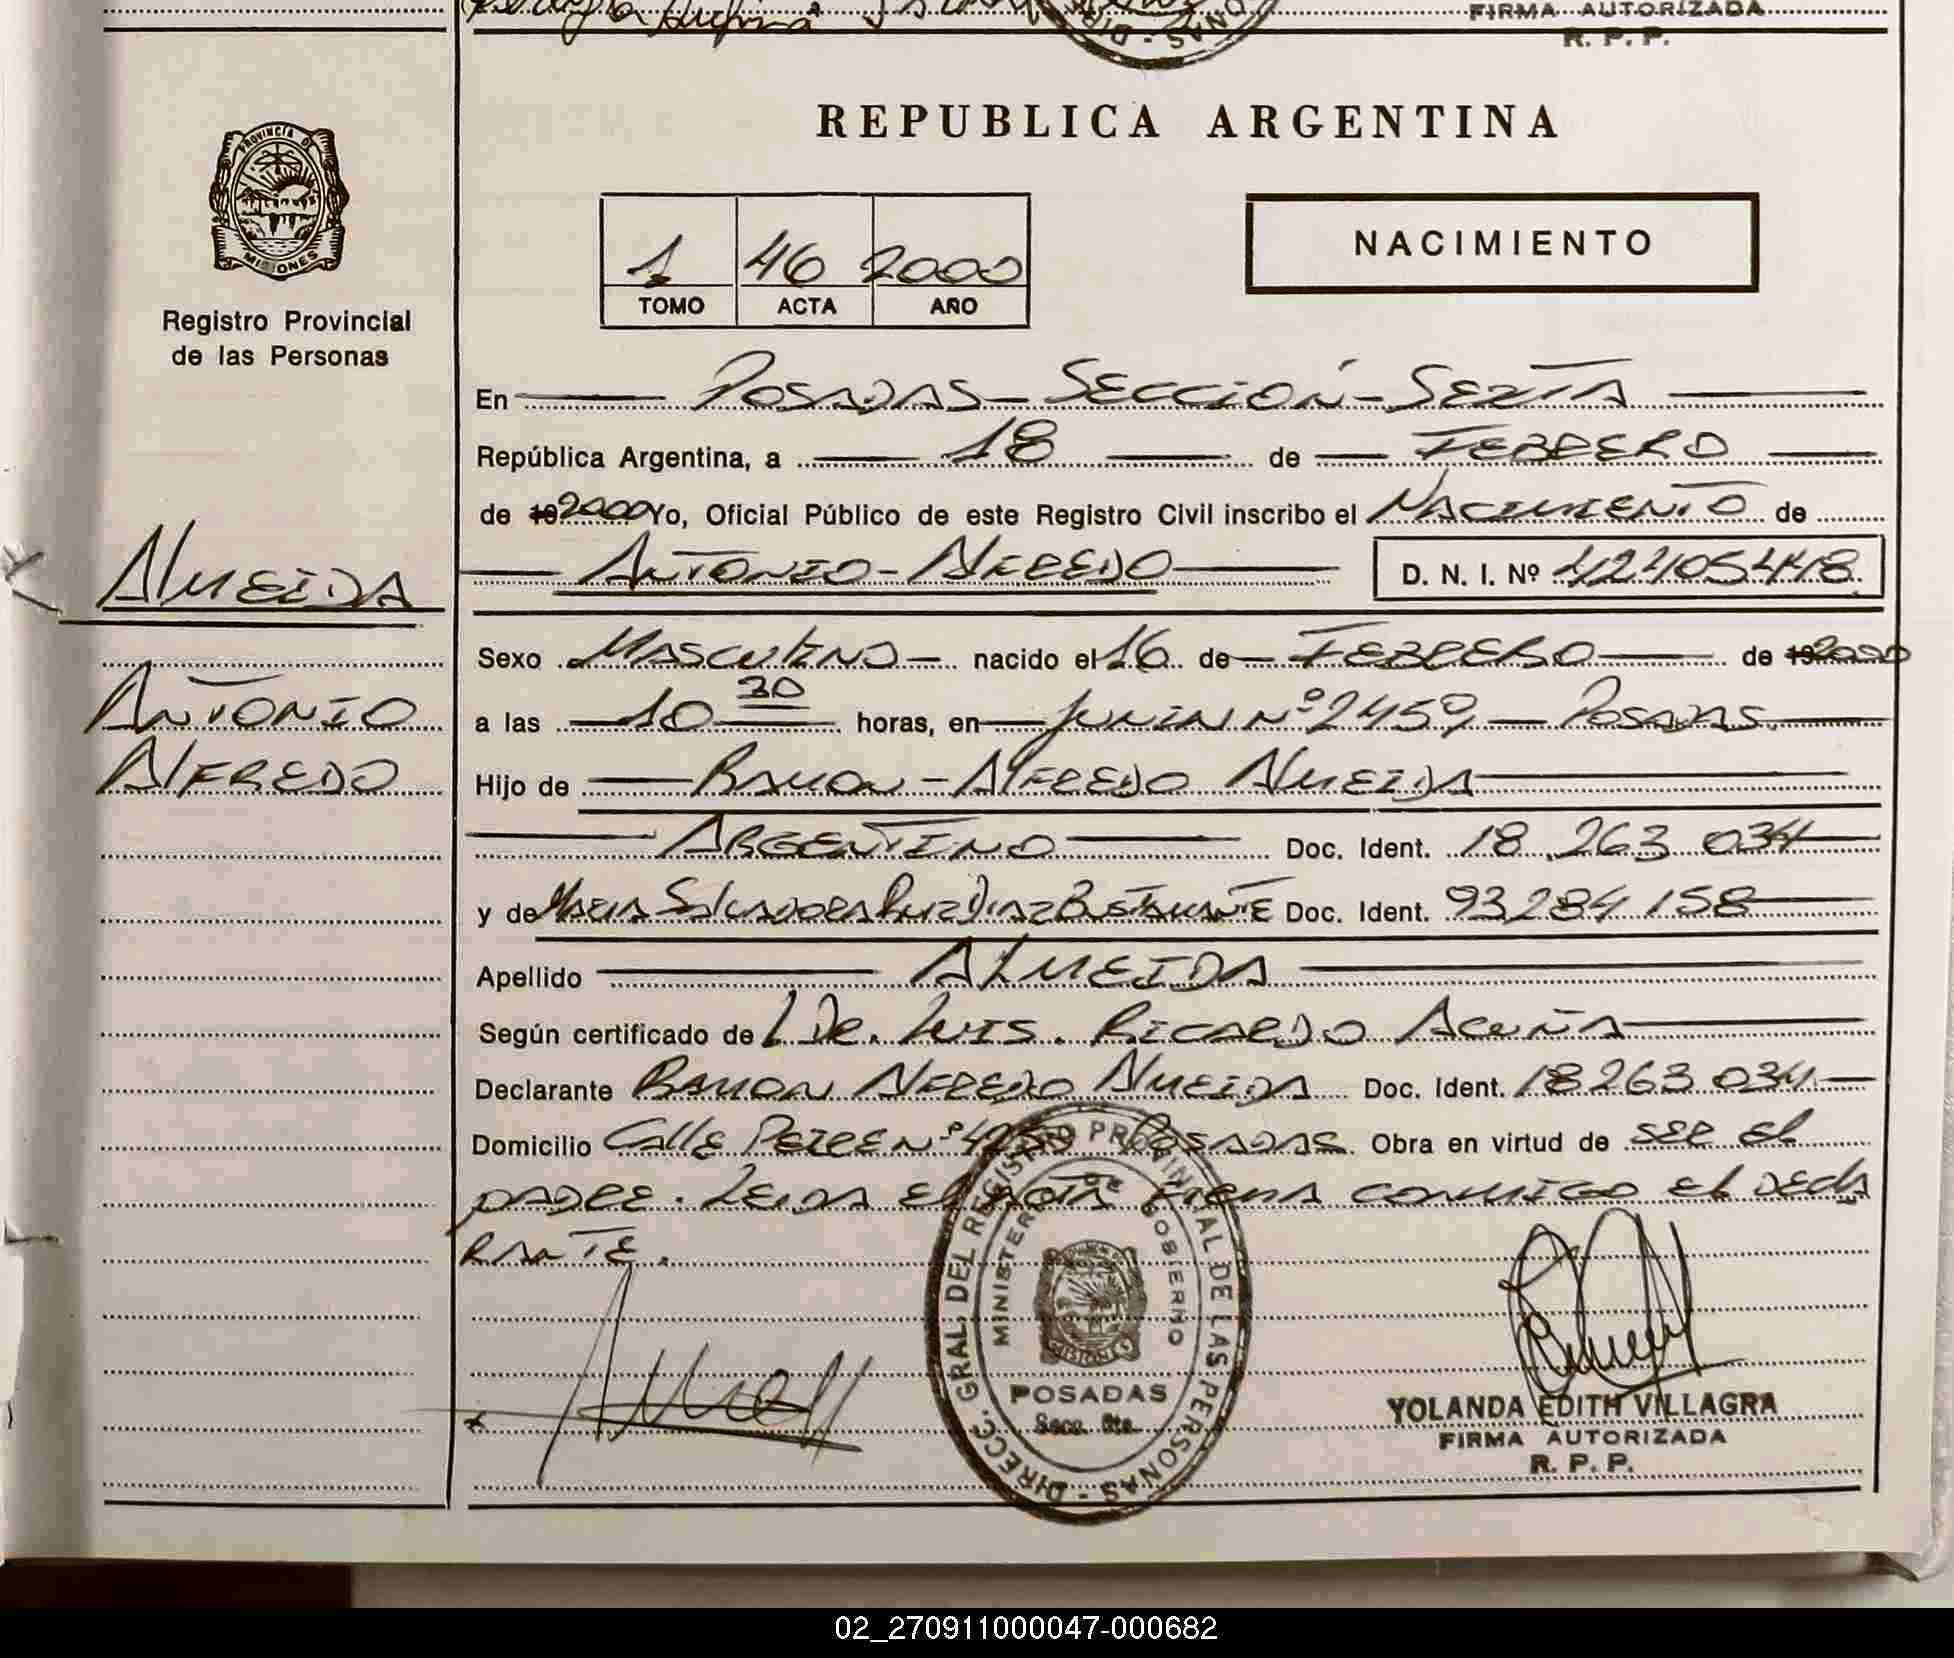 FIRMA AUTORIZADA
R. P. P.
REPUBLICA ARGENTINA
PROVINCIA DE
MISIONES
Registro Provincial
de las Personas
1 46 2000
TOMO ACTA AÑO
NACIMIENTO
En POSADAS - SECCIÓN - SEXTA
República Argentina, a 18 de FEBRERO
de 19 2000 Yo, Oficial Público de este Registro Civil inscribo el NACIMIENTO de
ANTONIO - ALFREDO D. N. I. Nº 42405448
ALMEIDA
ANTONIO
ALFREDO
Sexo MASCULINO nacido el 16 de FEBRERO de 19 2000
a las 10 30 horas, en JUNIN Nº 2459 - POSADAS.
Hijo de RAMON - ALFREDO ALMEIDA
ARGENTINO Doc. Ident. 18.263 034
y de MARIA SALVADORA RUIZ DIAZ BUSTAMANTE Doc. Ident. 93284158
Apellido ALMEIDA
Según certificado de DR. LUIS. RICARDO ACUÑA
Declarante RAMON ALFREDO ALMEIDA Doc. Ident. 18263 034
Domicilio CALLE Nº POSADAS. Obra en virtud de SER EL
PADRE. LEIDA EL ACTA FIRMA CONMIGO EL DECLA
RANTE.
DIRECC. GRAL. DEL REGISTRO PROVINCIAL DE LAS PERSONAS -
MINISTERIO DE GOBIERNO
MISIONES
POSADAS
Secc. 6ta.
YOLANDA EDITH VILLAGRA
FIRMA AUTORIZADA
R. P. P.
02_270911000047-000682